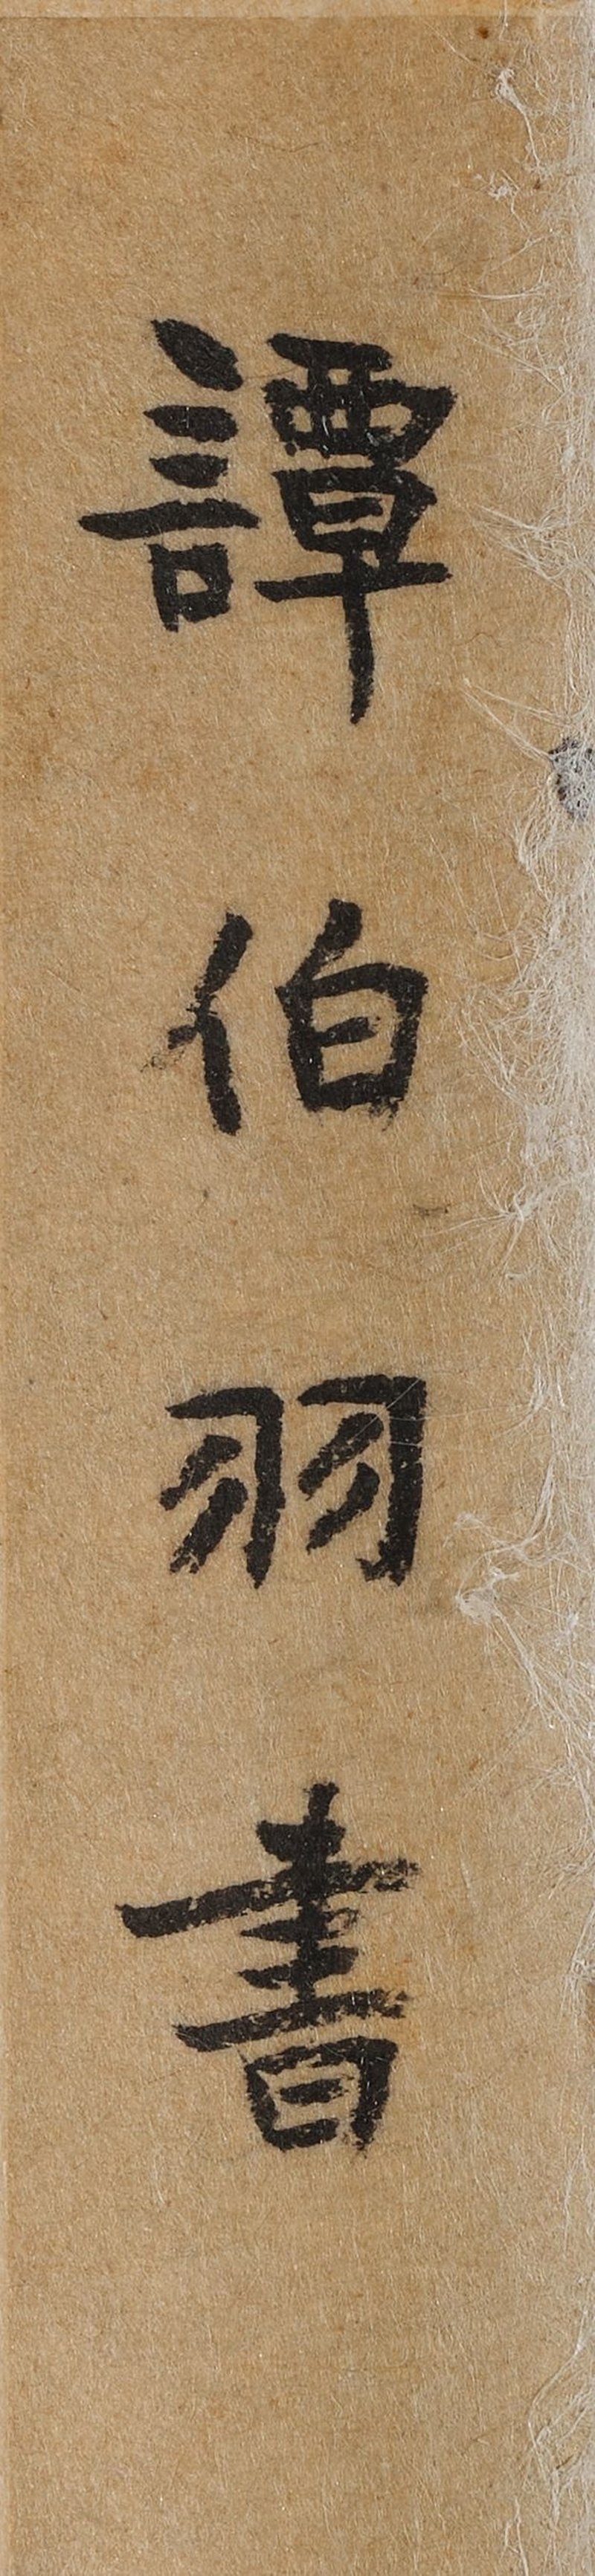 譚伯羽書